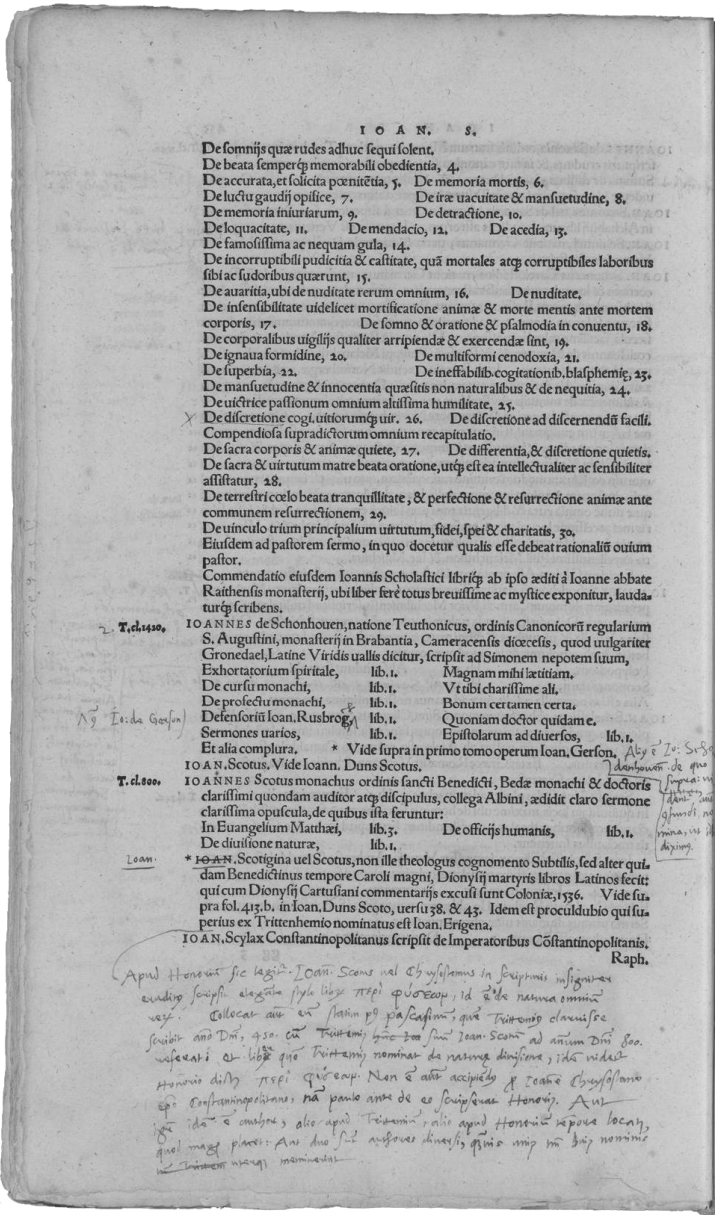 IOAN. S.
De somnijs quæ rudes adhuc sequi solent.
De beata semperq́; memorabili obedientia, 4.
De accurata, et solicita pœnitẽtia, 5. De memoria mortis, 6.
De luctu gaudij opifice, 7. De iræ uacuitate & mansuetudine, 8.
De memoria iniuriarum, 9. De detractione, 10.
De loquacitate, 11. De mendacio, 12. De acedia, 13.
De famosissima ac nequam gula, 14.
De incorruptibili pudicitia & castitate, quã mortales atq; corruptibiles laboribus
sibi ac sudoribus quærunt, 15.
De auaritia, ubi de nuditate rerum omnium, 16. De nuditate.
De insensibilitate uidelicet mortificatione animæ & morte mentis ante mortem
corporis, 17. De somno & oratione & psalmodia in conuentu, 18.
De corporalibus uigilijs qualiter arripiendæ & exercendæ sint, 19.
De ignaua formidine, 20. De multiformi cenodoxia, 21.
De superbia, 22. De ineffabilib. cogitationib. blasphemię, 23.
De mansuetudine & innocentia quæsitis non naturalibus & de nequitia, 24.
De uictrice passionum omnium altissima humilitate, 25.
De discretione cogi. uitiorumq́; uir. 26. De discretione ad discernendũ facili.
Compendiosa supradictorum omnium recapitulatio.
De sacra corporis & animæ quiete, 27. De differentia, & discretione quietis.
De sacra & uirtutum matre beata oratione, utq́; est ea intellectualiter ac sensibiliter
assistatur, 28.
De terrestri cœlo beata tranquillitate, & perfectione & resurrectione animæ ante
communem resurrectionem, 29.
De uinculo trium principalium uirtutum, fidei, spei & charitatis, 30.
Eiusdem ad pastorem sermo, in quo docetur qualis esse debeat rationaliũ ouium
pastor.
Commendatio eiusdem Ioannis Scholastici libriq́; ab ipso æditi à Ioanne abbate
Raithensis monasterij, ubi liber ferè totus breuissime ac mystice exponitur, lauda-
turq́; scribens.
2. T. cl. 1420. IOANNES de Schonhouen, natione Teuthonicus, ordinis Canonicorũ regularium
S. Augustini, monasterij in Brabantia, Cameracensis diœcesis, quod uulgariter
Gronedael, Latine Viridis uallis dicitur, scripsit ad Simonem nepotem suum,
Exhortatorium spirituale, lib. 1. Magnam mihi lætitiam.
De cursu monachi, lib. 1. Vt tibi charissime ali.
De profectu monachi, lib. 1. Bonum certamen certa.
Io: de Gerson Defensoriũ Ioan. Rusbrog. lib. 1. Quoniam doctor quidam e.
Sermones uarios, lib. 1. Epistolarum ad diuersos, lib. 1.
Et alia complura. * Vide supra in primo tomo operum Ioan. Gerson.
IOAN. Scotus. Vide Ioann. Duns Scotus.
T. cl. 800. IOANNES Scotus monachus ordinis sancti Benedicti, Bedæ monachi & doctoris
clarissimi quondam auditor atq; discipulus, collega Albini, ædidit claro sermone
clarissima opuscula, de quibus ista feruntur:
In Euangelium Matthæi, lib. 3. De officijs humanis, lib. 1.
De diuisione naturæ, lib. 1.
Ioan. * IOAN. Scotigina uel Scotus, non ille theologus cognomento Subtilis, sed alter qui-
dam Benedictinus tempore Caroli magni, Dionysij martyris libros Latinos fecit:
qui cum Dionysij Cartusiani commentarijs excusi sunt Coloniæ, 1536. Vide su-
pra fol. 413. b. in Ioan. Duns Scoto, uersu 38. & 43. Idem est proculdubio qui su-
perius ex Trittenhemio nominatus est Ioan. Erigena.
IOAN. Scylax Constantinopolitanus scripsit de Imperatoribus Cõstantinopolitanis.
Raph.
Apud Honorium sic legit. Ioan. Scotus vel Chrysostomus in scripturis insigniter
eruditus scripsit eleganti stylo περὶ φύσεων, id ẽ de natura omnium
Collocat pascasium, Trittemius claruisse
scribit Dñi, 450. Ioan. ad annum Dñi 800.
Trittemius nominat de naturæ divisione, idem
Honorio περὶ φύσεων. Non ẽ accipiendus Chrysostomo
Constantinopolitano, paulo ante de eo scripserat Honorius. Aut
idem ẽ author, alio apud Trittemium, alio apud Honorium tempore
quod magis placet: Aut duo authores diversi, nominis